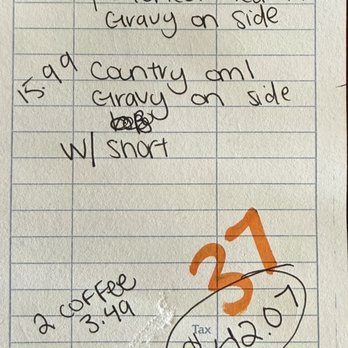 Gravy on side
15.99 Country oml
Gravy on side
w/ short
37
2 coffee
3.49
Tax
42.07